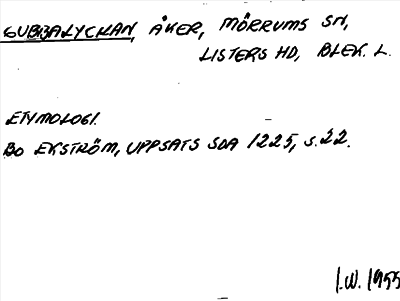 GUBBALYCKAN, ÅKER, MÖRRUMS SN,
LISTERS HD, BLEK. L.
ETYMOLOGI.
BO EKSTRÖM, UPPSATS SOA 1225, S.22.
I.W. 1955